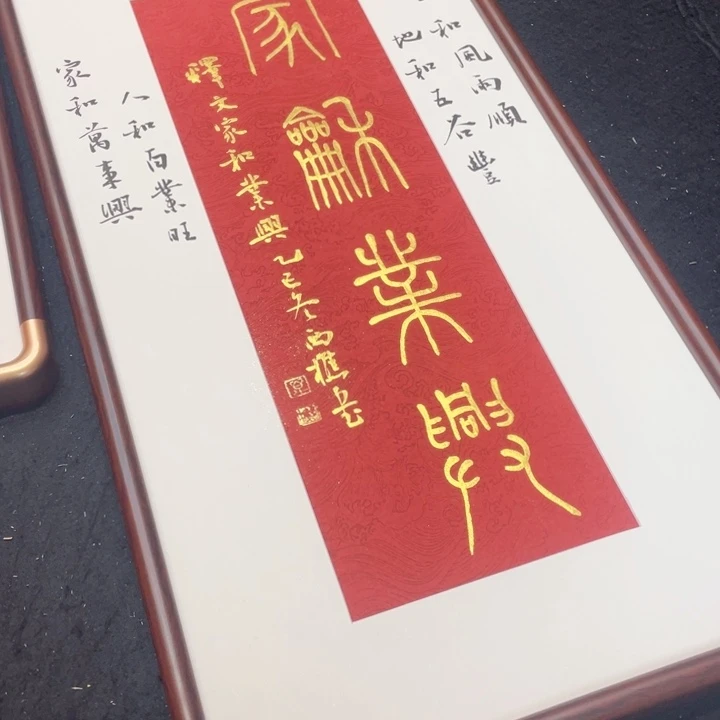 和風雨順
地和五谷豐
家龢業興
釋文家和業興乙巳冬西樵
人和百業旺
家和萬事興